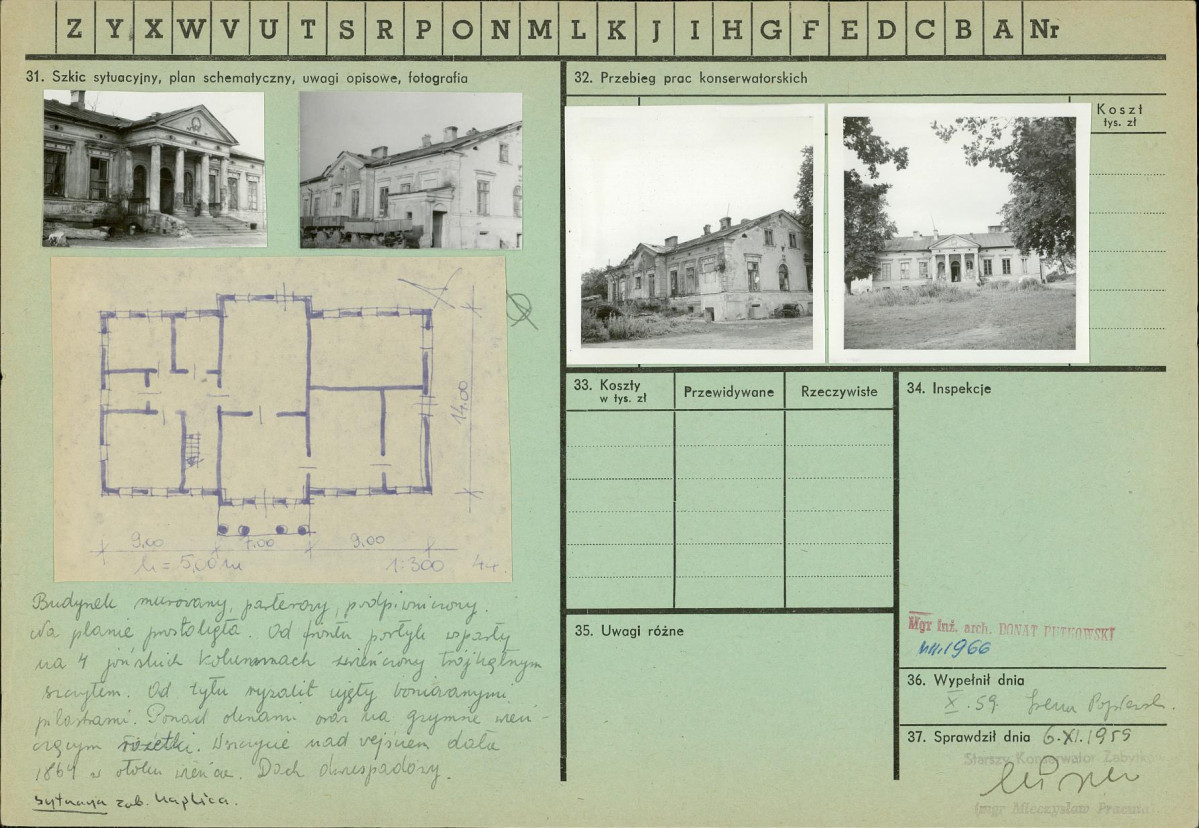 Z Y X W V U T S R P O N M L K J I H G F E D C B A Nr
31. Szkic sytuacyjny, plan schematyczny, uwagi opisowe, fotografia
14.00
9,00 7.00 9.00
h = 5,00 m 1:300
Budynek murowany, parterowy, podpiwniczony.
Na planie prostokąta. Od frontu portyk wsparty
na 4 jońskich kolumnach zwieńczony trójkątnym
szczytem. Od tyłu ryzalit ujęty boniowanymi
pilastrami. Ponad oknami oraz na gzymsie wień-
czącym rozetki. W szczycie nad wejściem data
1864 w otoku wieńca. Dach dwuspadowy.
sytuacja zob. kaplica.
32. Przebieg prac konserwatorskich
Koszt
tys. zł
33. Koszty
w tys. zł
Przewidywane
Rzeczywiste
34. Inspekcje
Mgr inż. arch. DONAT PUTKOWSKI
1966
35. Uwagi różne
36. Wypełnił dnia
X.59. Irena
37. Sprawdził dnia 6.XI.1959
Starszy Konserwator Zabytków
(mgr Mieczysław